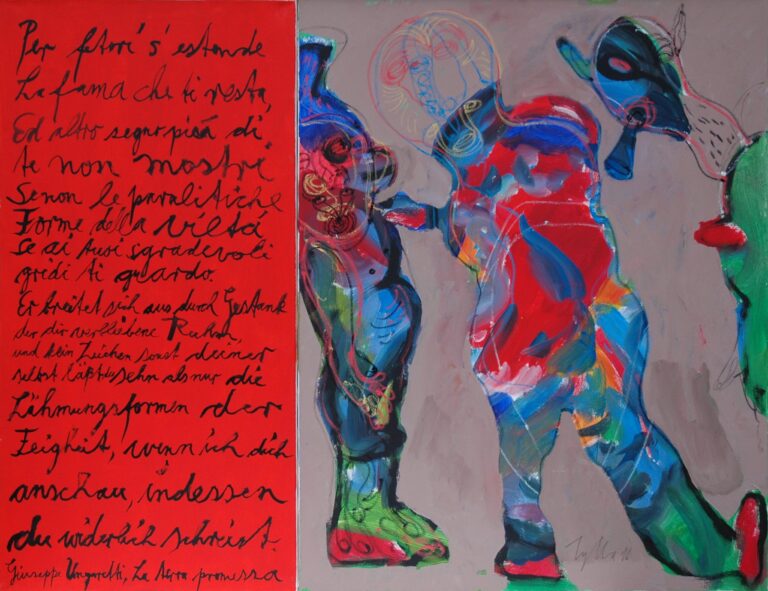 Per fetori s'estende
La fama che ti resta,
Ed altro segno più di
te non mostri
Se non le paralitiche
Forme della viltà
Se ai tuoi sgradevoli
gridi ti guardo.
Er breitet sich aus durch Gestank
der dir verbliebene Ruhm,
und kein Zeichen sonst deiner
selbst läßt sehn als nur die
Lähmungsformen der
Feigheit, wenn ich dich
anschau, indessen
du widerlich schreist.
Giuseppe Ungaretti, La terra promessa